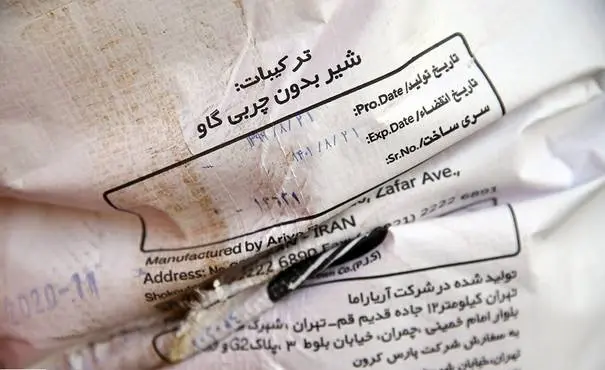 ترکیبات:
شیر بدون چربی گاو
تاریخ تولید/Pro.Date:
۱۳۹۹/۸/۲۱
تاریخ انقضاء/Exp.Date:
۱۴۰۱/۸/۲۱
سری ساخت/Sr.No.:
Zafar Ave.,
Manufactured by Ariya IRAN
Address: No
2222 6890
21) 2222 6891
Co.(P.J.S)
2020-11
تولید شده در شرکت آریاراما
تهران کیلومتر۱۲ جاده قدیم قم-تهران ، شهرک
بلوار امام خمینی ،چمران، خیابان بلوط ۳ ،پلاکG2 و
به سفارش شرکت پارس کرون
تهران،خیابان